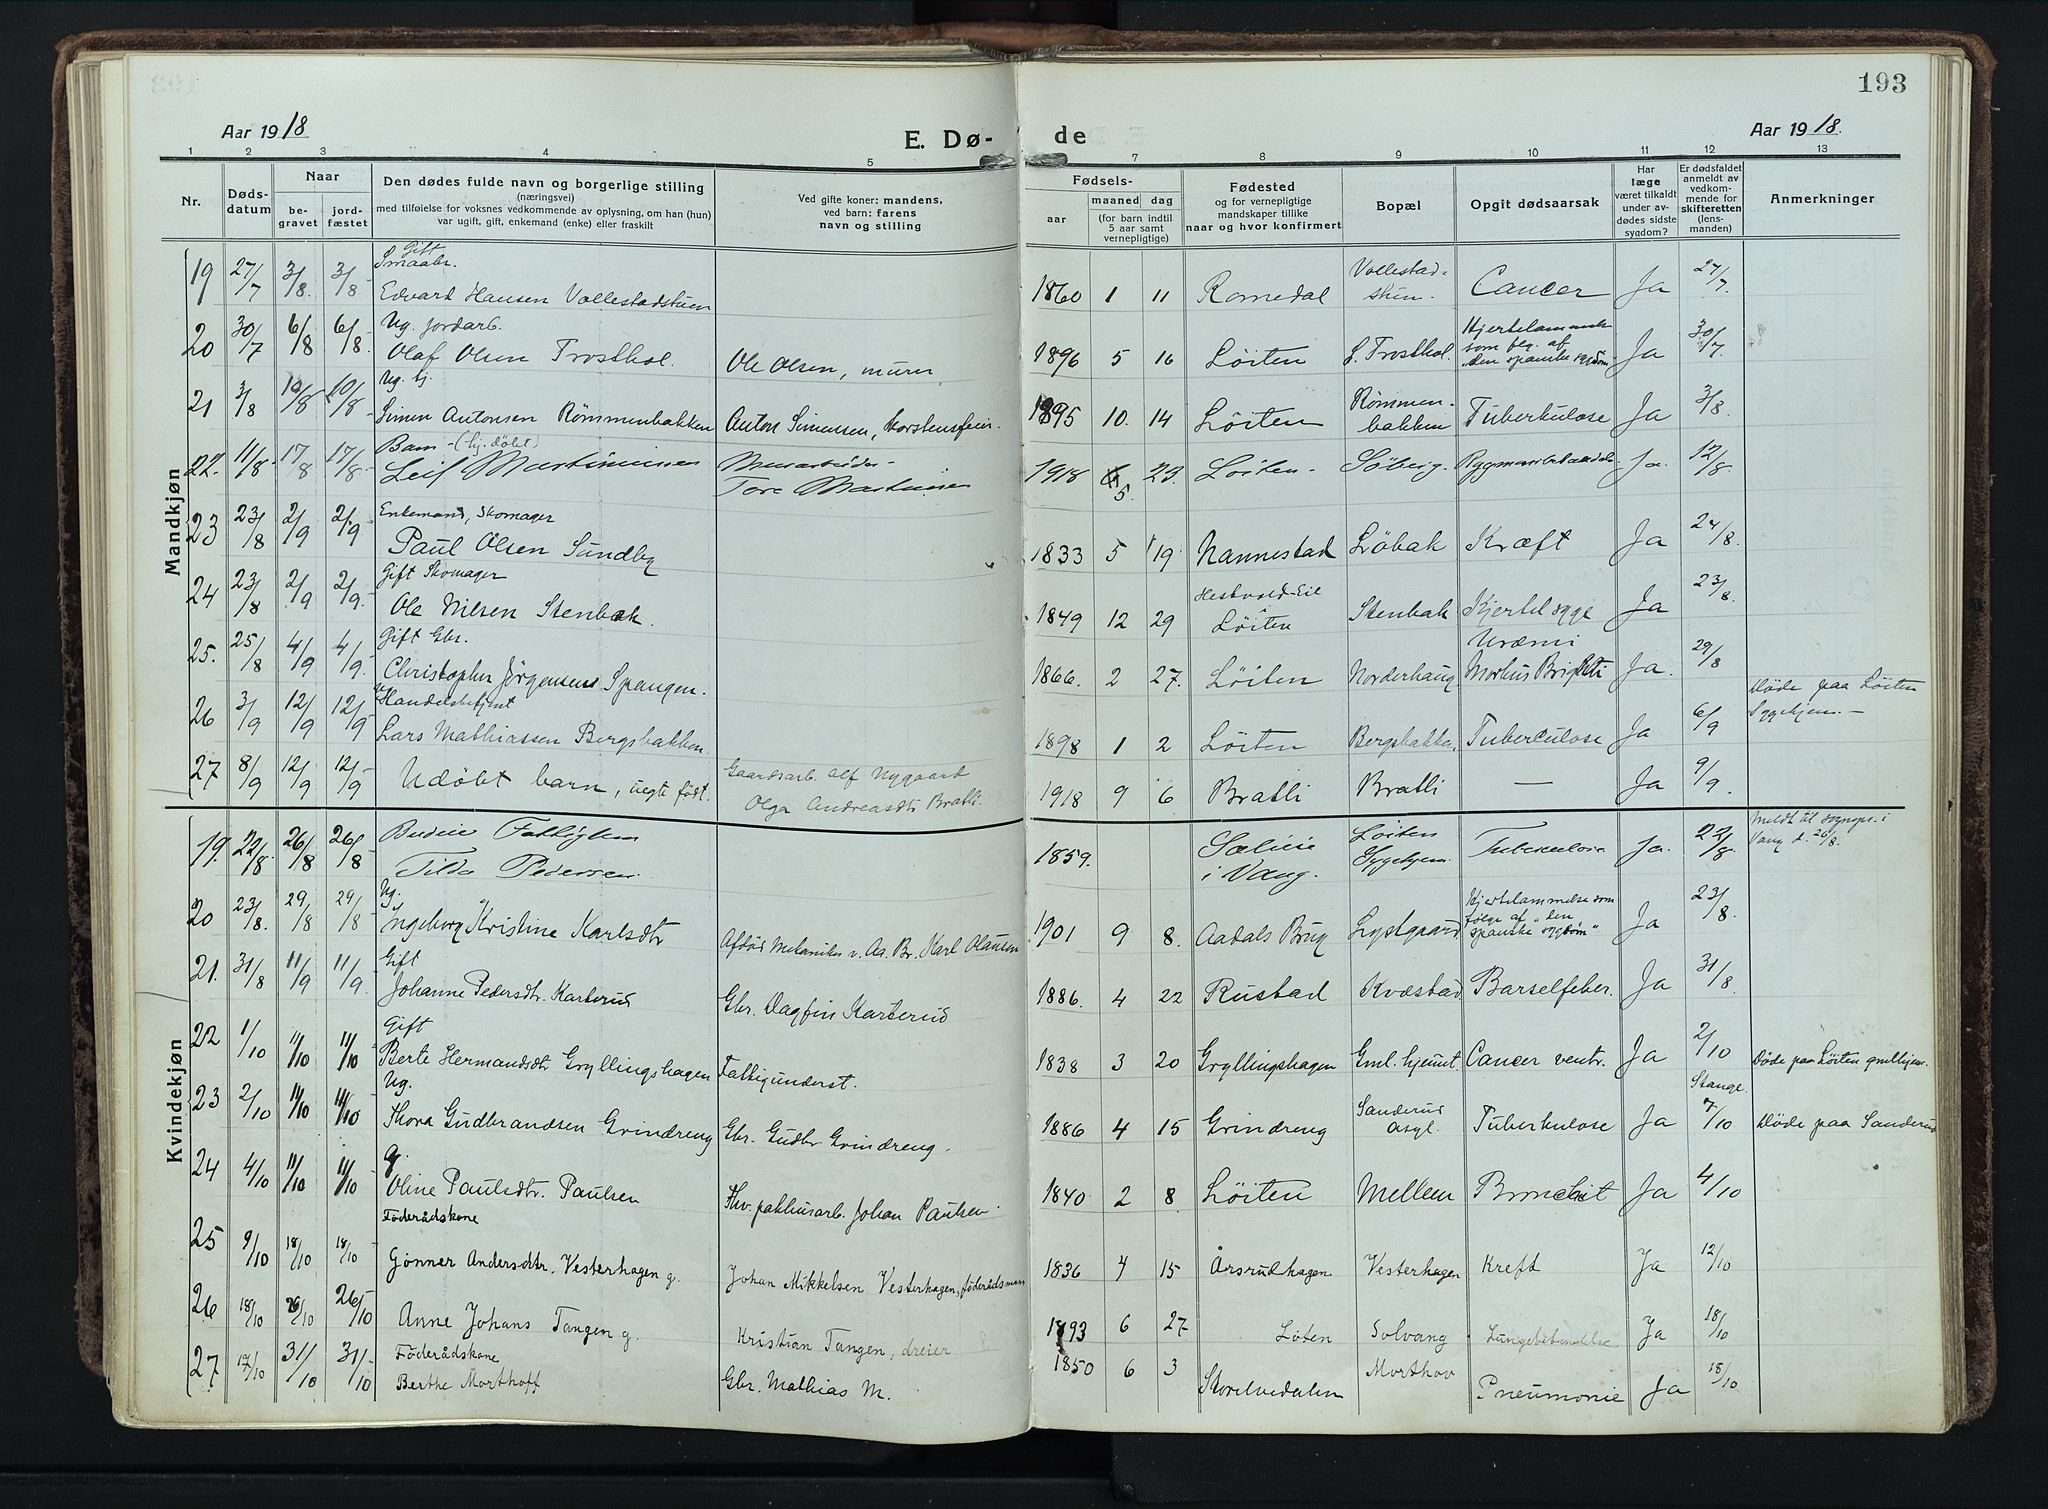 193
Aar 1918
E. Dø-
de
Aar 1918.
1 2 3 4 5 7 8 9 10 11 12 13
Nr.
Døds-
datum
Naar
be-
gravet
jord-
fæstet
Den dødes fulde navn og borgerlige stilling
(næringsvei)
med tilføielse for voksnes vedkommende av oplysning, om han (hun)
var ugift, gift, enkemand (enke) eller fraskilt
Ved gifte koner: mandens,
ved barn: farens
navn og stilling
Fødsels-
aar
maaned dag
(for barn indtil
5 aar samt
vernepligtige)
Fødested
og for vernepligtige
mandskaper tillike
naar og hvor konfirmert
Bopæl
Opgit dødsaarsak
Har
læge
været tilkaldt
under av-
dødes sidste
sygdom?
Er dødsfaldet
anmeldt av
vedkom-
mende for
skifteretten
(lens-
manden)
Anmerkninger
Mandkjøn
Gift
Smaabr.
19 27/7 3/8. 3/8 Edvard Hansen Vollestadstuen 1860 1 11 Romedal Vollestad-
stuen. Cancer Ja 27/7.
Ug. jordarb.
20 30/7 6/8 6/8. Olaf Olsen Trosthol. Ole Olsen, murer 1896 5 16 Löiten S. Trosthol. Hjertelammelse
som følg. af
"den spanske sygdom" Ja 30/7.
Ug.
21 3/8 10/8 10/8. Simen Antonsen Rømmenbakken Anton Simensen, skorstensfeier. 1895 10. 14 Löiten Rømmen-
bakken Tuberkulose Ja 3/8.
Barn - (hj. døbt)
22. 11/8. 17/8 17/8. Leif Martinsen Murarbeider
Tore Martinsen 1918 5. 23. Löiten - Söberg. Ja. 12/8.
Enkemand, Skomager
23 23/8 2/9 2/9. Paul Olsen Sundby 1833 5 19 Nannestad Löbak Kræft Ja 24/8.
Gift Skomager
24 23/8. 2/9 2/9. Ole Nilsen Stenbæk. 1849 12 29 Hestvold-Eie
Löiten Stenbak Kjertelsyge Ja 23/8.
Gift Gbr.
25. 25/8 4/9 4/9. Christopher Jörgensens Spangen. 1866. 2 27. Löiten Norderhaug Uræmi
Morbus Brighti Ja. 29/8
Handelsbetjent
26 3/9 12/9 12/9 Lars Mathiassen Bergsbakken. 1898 1 2 Löiten Bergsbakken Tuberculose Ja 6/9 Döde paa Löiten
Sygehjem. -
27 8/9 12/9 12/9 Udöbt barn, uegte födt. Gaardsarb. Alf Nygaard
Olga Andreasdtr Bratli. 1918 9 6 Bratli Bratli — Ja 9/9.
Kvindekjøn
19. 22/8. 26/8 26/8 Budeie
Tilda Pedersen. 1859. Sælieie
i Vang. Löiten
Sygehjem. Tuberculose Ja. 22/8. Meldt til sognepr. i
Vang d. 26/8.
Ug.
20 23/8. 29/8 29/8 Ingeborg Kristine Karlsdtr Afdöd Mekaniker v. Aa. Br. Karl Olausen 1901 9 8. Aadals Brug Lystgaard Hjertelammelse som
følge af "den
spanske sygdom" Ja 23/8.
Gift
21. 31/8 11/9 11/9. Johanne Pedersdtr. Karterud Gbr. Dagfin Karterud 1886. 4 22 Rustad Kvæstad Barselfeber. Ja 31/8.
Gift
22 1/10 11/10 11/10 Berte Hermandsdtr Gryllingshagen Fattigunderst. 1838 3 20 Gryllingshagen Gml. hjemmet Cancer ventr. Ja 2/10 Döde paa Löiten gmlhjem.
Ug.
23 2/10 11/10 11/10 Thora Gudbrandsen Grindreng Gbr. Gudbr Grindreng. 1886 4 15 Grindreng Sanderud
asyl. Tuberkulose Ja Stange
7/10 Döde paa Sanderud
g.
24 4/10 11/10 11/10 Oline Paulsdtr. Paulsen Thv. pakhusarb. Johan Paulsen. 1840 2 8 Löiten Melleen Bronchit Ja 4/10
Föderådskone
25 9/10 18/10 18/10 Gjønner Andersdtr. Vesterhagen g. Johan Mikkelsen Vesterhagen, föderådsmann 1836 4 15 Årsrudhagen Vesterhagen Kreft Ja 12/10
26 18/10 26/10 26/10 Anne Johans Tangen g. Kristian Tangen, dreier 1893 6 27 Löten Solvang Lungebetendelse. Ja 18/10
27 17/10 31/10 31/10 Föderådskone
Berthe Morthoff Gbr. Mathias M. 1850 6 3 Storelvedalen Morthov Pneumonie Ja 18/10